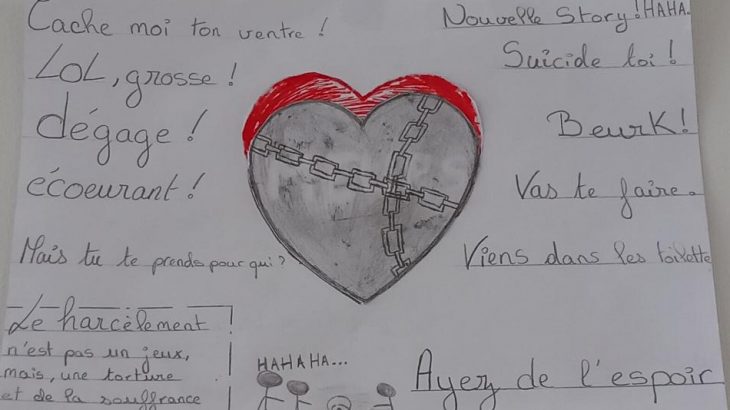 Cache moi ton ventre !
LOL, grosse !
dégage !
écoeurant !
Mais tu te prends pour qui ?
Le harcèlement
n'est pas un jeux,
mais, une torture
et de la souffrance
HAHAHA...
Nouvelle Story ! HAHA.
Suicide toi !
BeurK !
Vas te faire.
Viens dans les toilette
Ayez de l'espoir